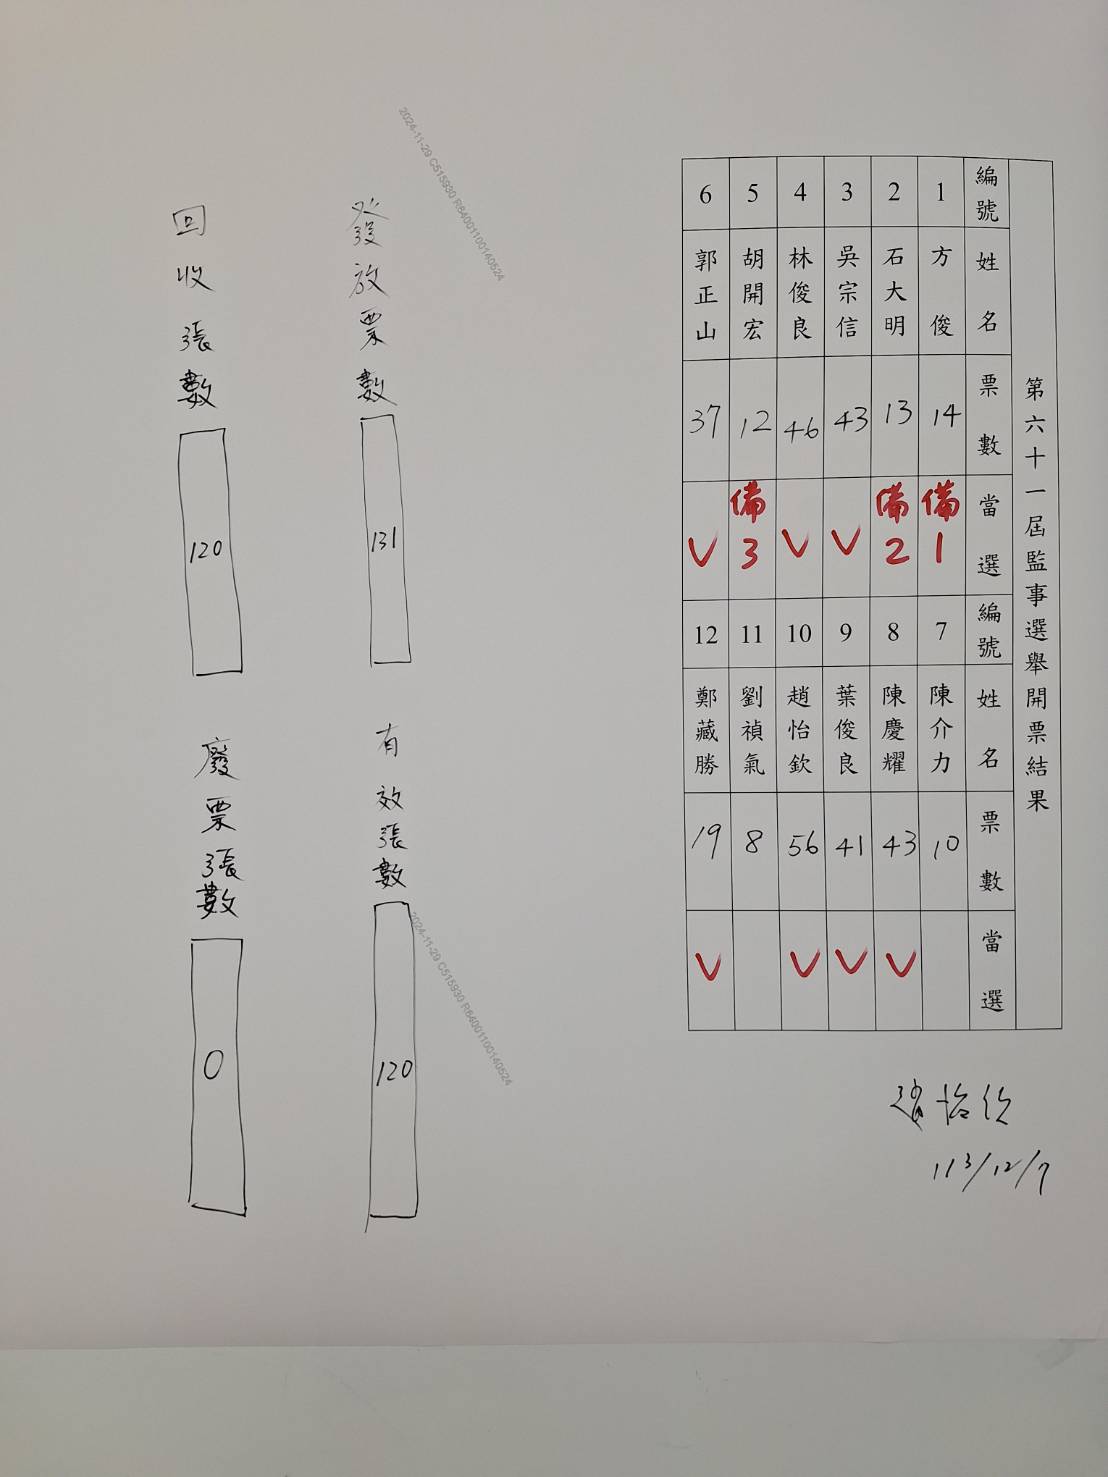 第六十一屆監事選舉開票結果
編號 姓名 票數 當選 編號 姓名 票數 當選
1 方俊 14 備1 7 陳介力 10
2 石大明 13 備2 8 陳慶耀 43 V
3 吳宗信 43 V 9 葉俊良 41 V
4 林俊良 46 V 10 趙怡欽 56 V
5 胡開宏 12 備3 11 劉禎氣 8
6 郭正山 37 V 12 鄭藏勝 19 V
趙怡欽
113/12/7
發放票數 131
有效張數 120
回收張數 120
廢票張數 0
2024-11-29 C515930 R64001100140524
2024-11-29 C515930 R64001100140524